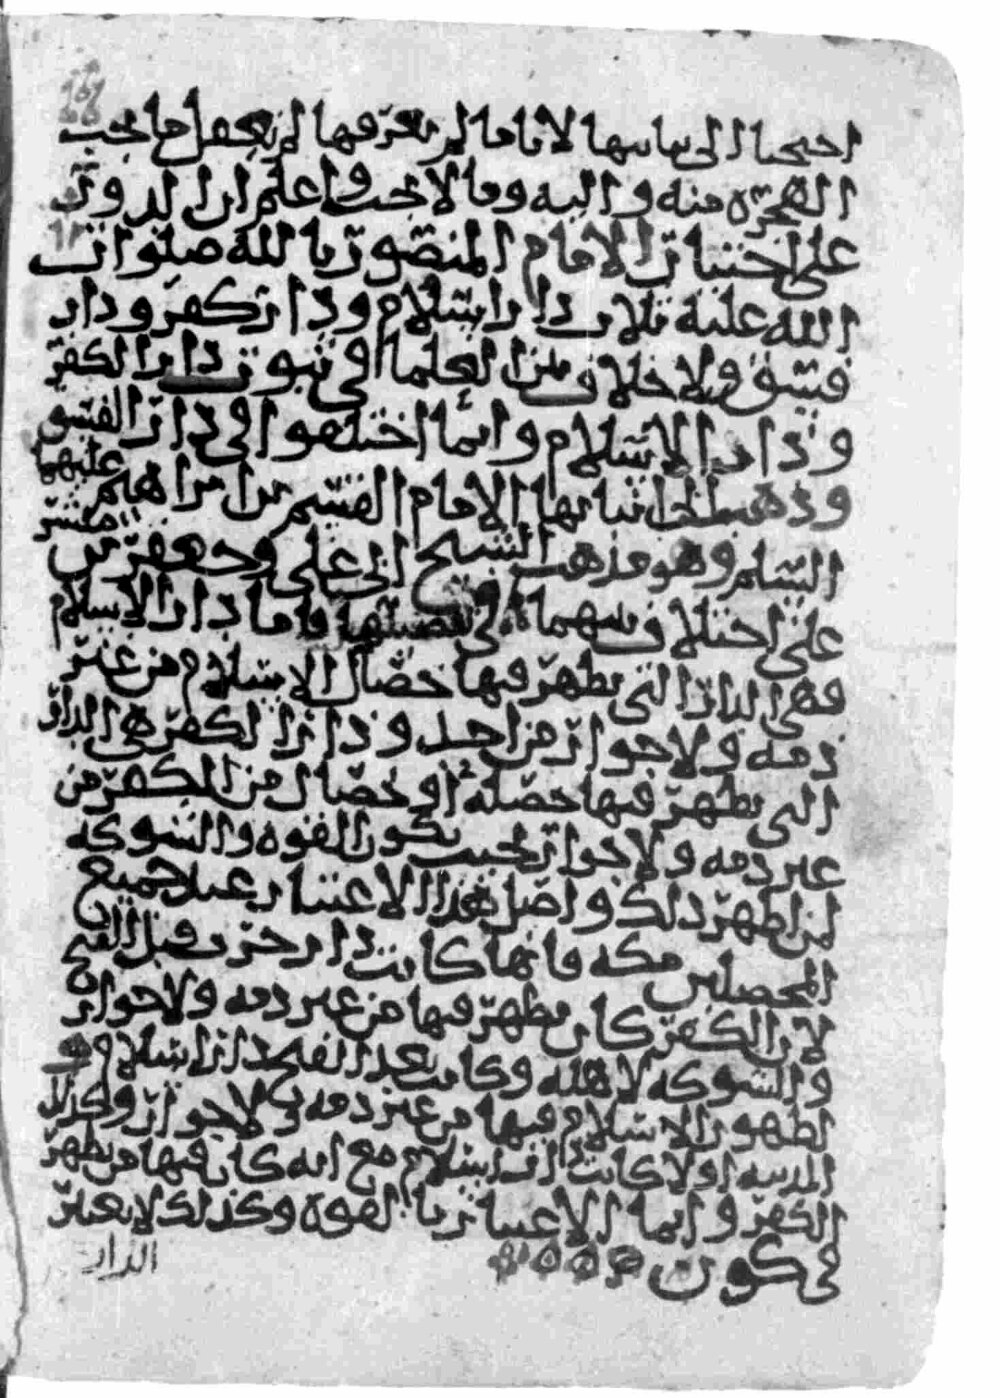 احتجنا الى بيانها لانا ما لم نعرفها لم نعقل ما يجب
الهجرة منه واليه وما لا يجب واعلم ان الدور
على اختيار الامام المنصور بالله صلوات
الله عليه ثلاث دار اسلام ودار كفر ودار
فسق ولا خلاف بين العلما في ثبوت دار الكفر
ودار الاسلام وانما اختلفوا في دار الفسق
وذهب الى اثباتها الامام القسم بن ابراهيم عليهما
السلم وهو مذهب الشيخ ابي علي وجعفر بن مبشر
على اختلاف بينهما في تفصيلها فاما دار الاسلام
فهي الدار التي يظهر فيها خصال الاسلام من غير
ذمه ولا جوار من احد ودار الكفر هي الدار
التي يظهر فيها خصلة او خصال من الكفر من
غير ذمه ولا جوار بحيث تكون القوه والشوكه
لمن اظهر ذلك واصل هذا الاعتبار عند جميع
المحصلين مكه فانها كانت دار حرب قبل الفتح
لان الكفر كان يظهر فيها من غير ذمه ولا جوار
والشوكه لاهله وكانت بعد الفتح دار اسلام
لظهور الاسلام فيها من غير ذمه ولا جوار وكذلك
المدينه اولا كانت دار اسلام مع انه كان فيها من يظهر
الكفر وانما الاعتبار بالقوه وكذلك لا يعتبر
في كون
الدار